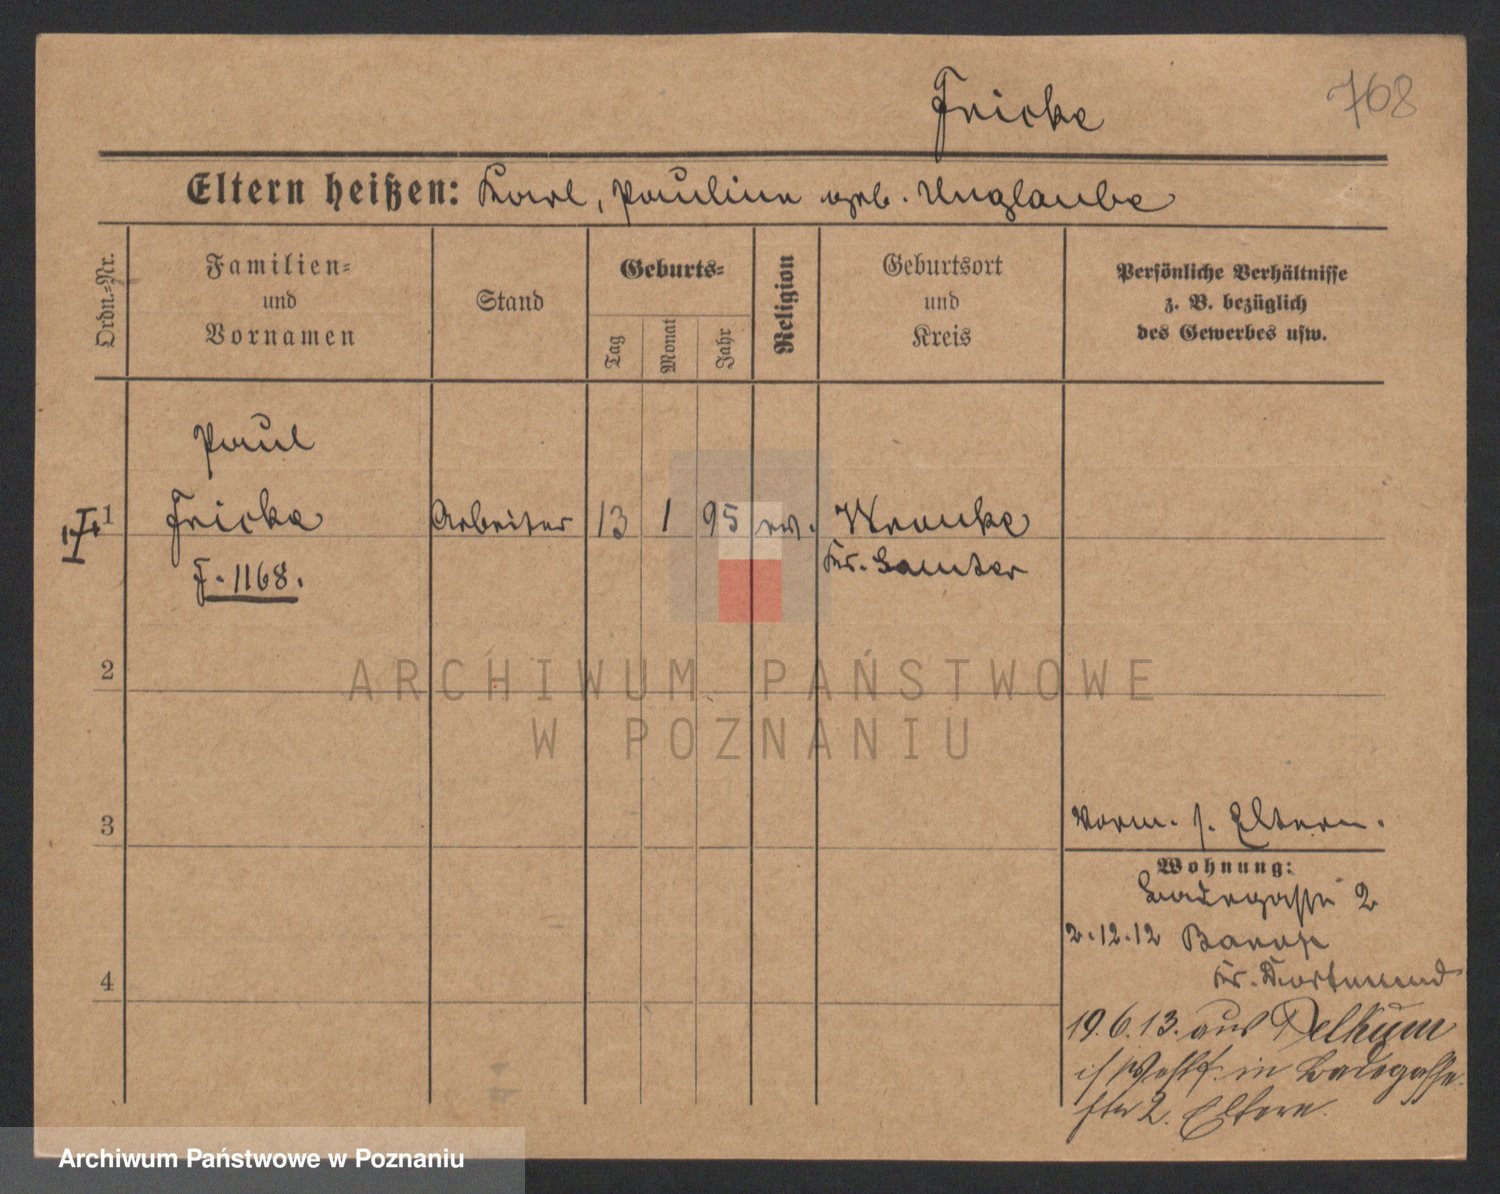 Fricke
768
Eltern heißen: Karl, Pauline geb. Unglaube
Ordn.-Nr.
Familien-
und
Vornamen
Stand
Geburts-
Tag
Monat
Jahr
Religion
Geburtsort
und
Kreis
Persönliche Verhältnisse
z. B. bezüglich
des Gewerbes usw.
Paul
1 Fricke Arbeiter 13 1 95 ev. Wronke
F. 1168. Kr. Samter
2
3
Vorm. s. Eltern.
Wohnung:
Badegasse 2
2.12.12 Barop
4
Kr. Dortmund
19.6.13. aus
i/ Westf. in Badegasse
2. Eltern.
ARCHIWUM PAŃSTWOWE
W POZNANIU
Archiwum Państwowe w Poznaniu